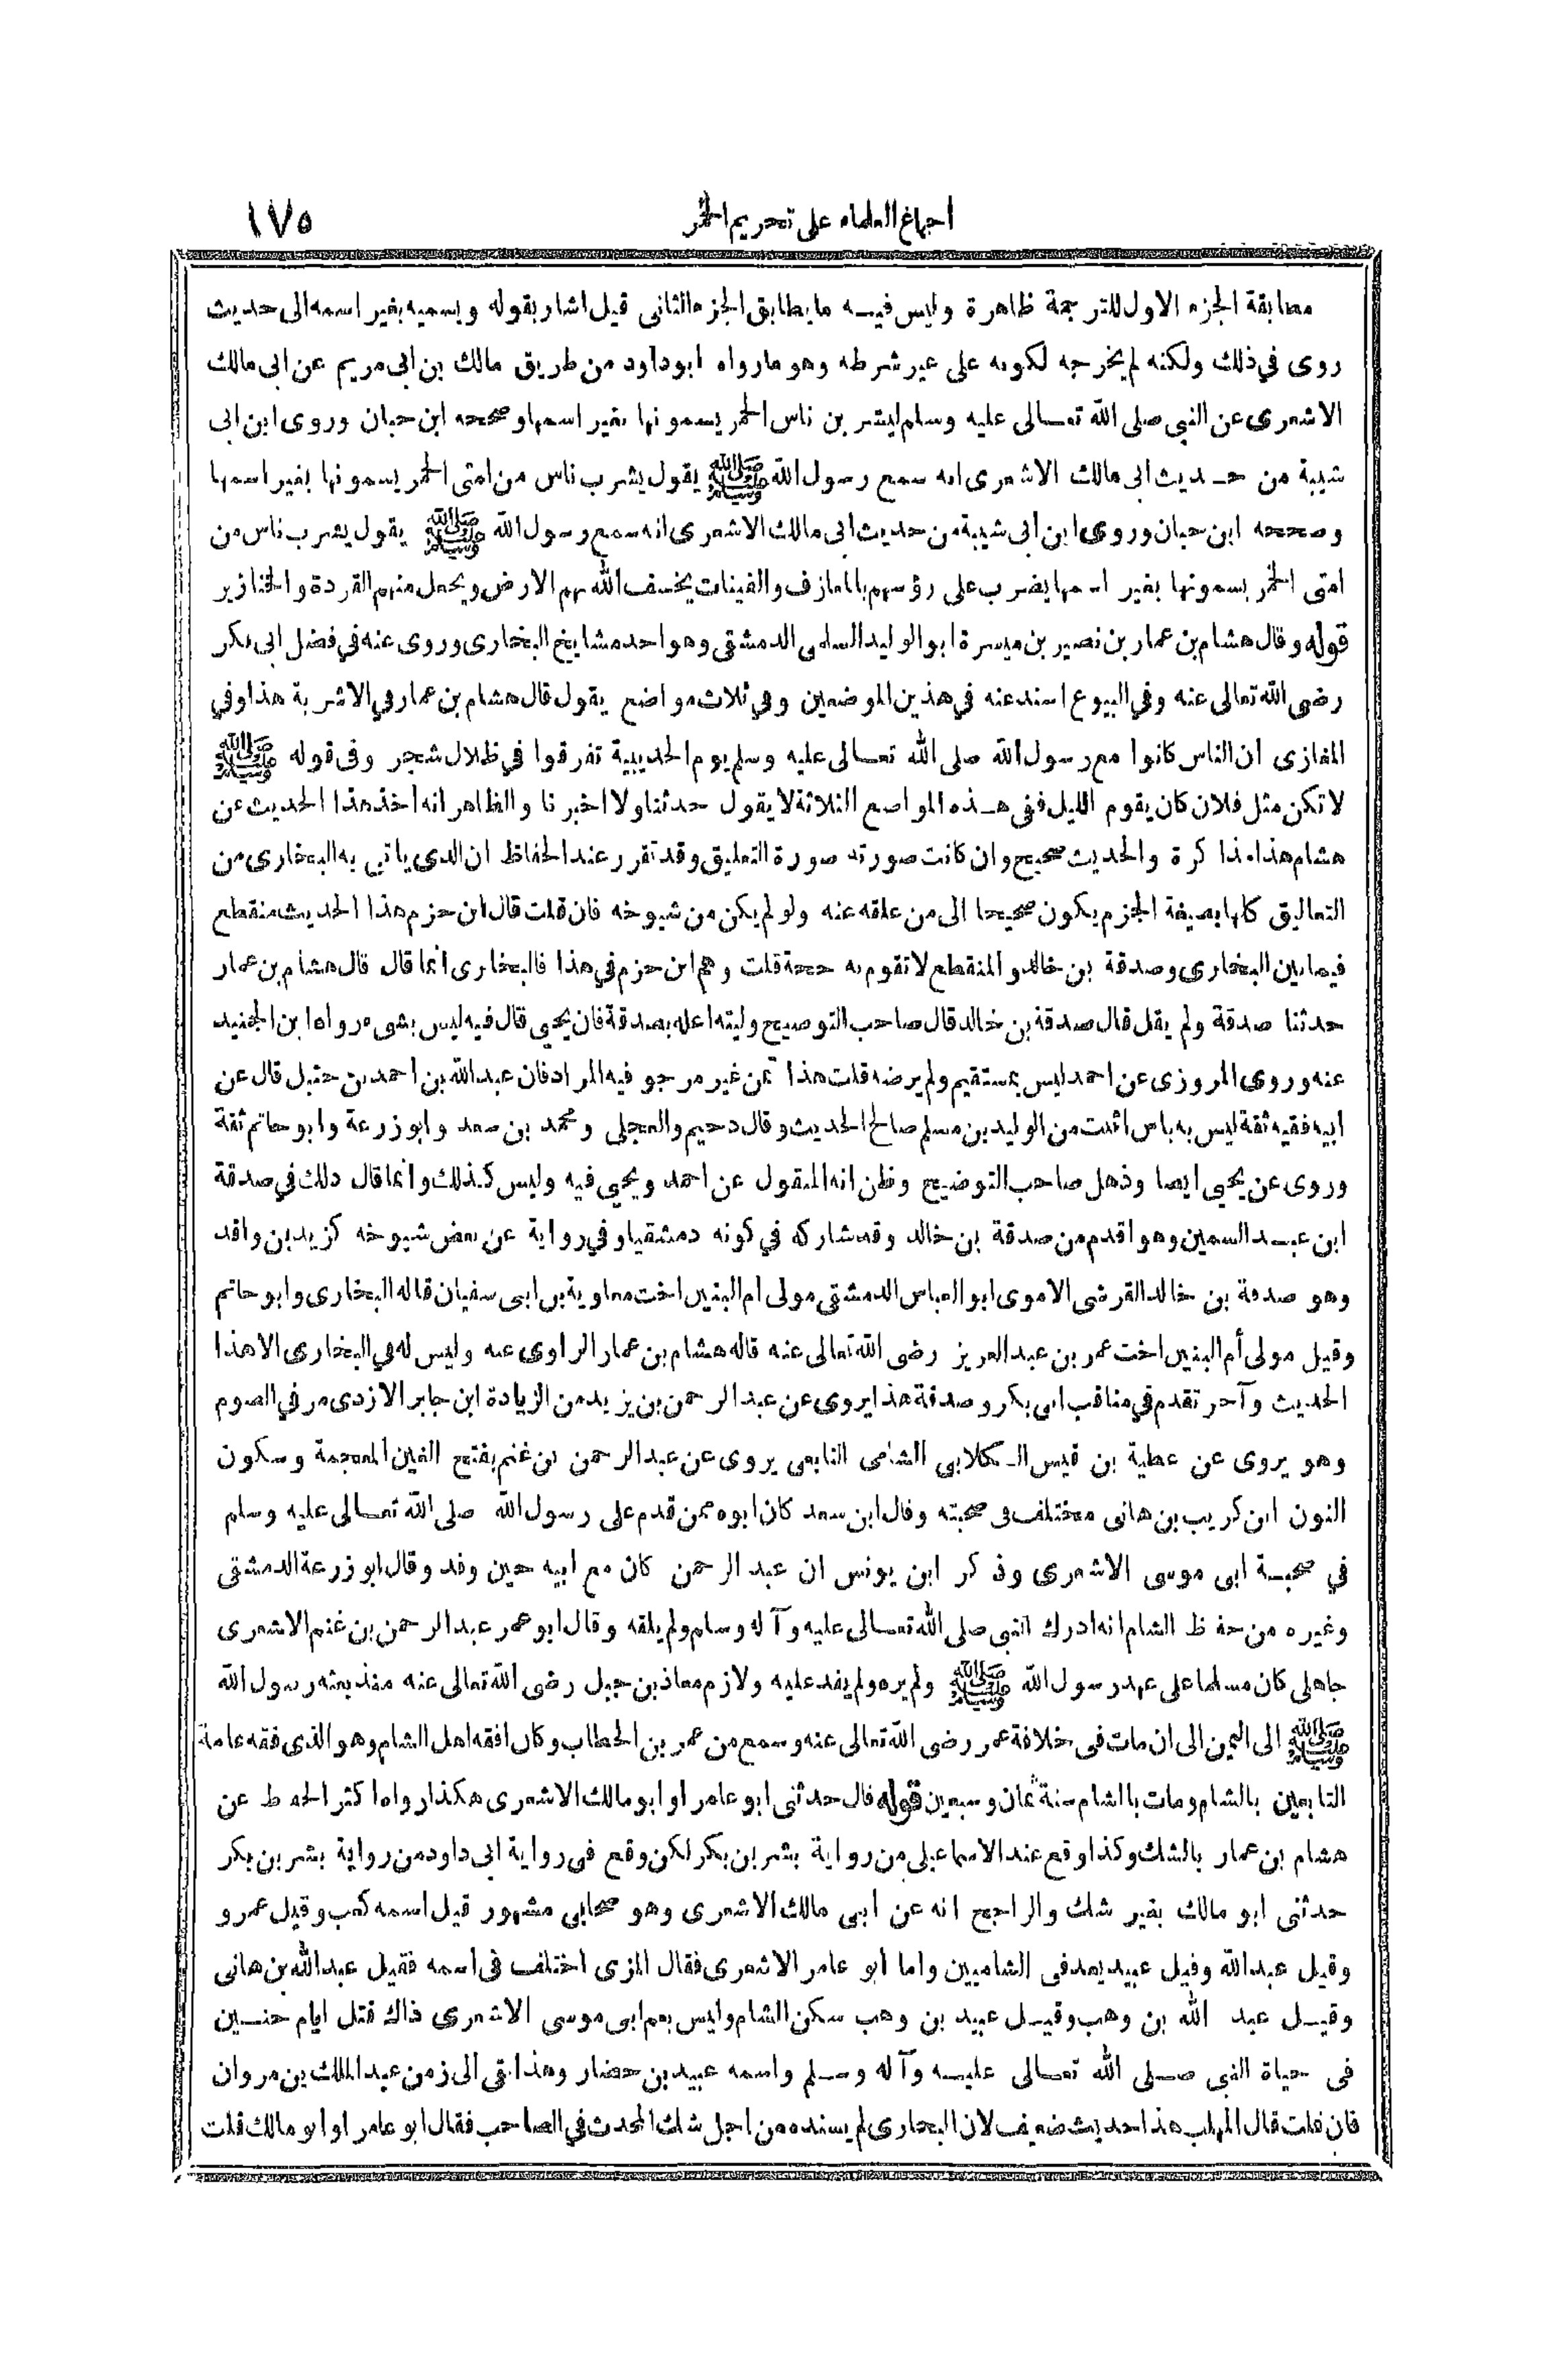 اجماع العلماء على تحريم الخمر ١٧٥
مطابقة الجزء الاول للترجمة ظاهرة وليس فيه ما يطابق الجزء الثانى قيل اشار بقوله ويسميه بغير اسمه الى حديث
روى في ذلك ولكنه لم يخرجه لكونه على غير شرطه وهو مارواه ابوداود من طريق مالك بن ابى مريم عن ابى مالك
الاشعرى عن النبى صلى الله تعالى عليه وسلم ليشربن ناس الخمر يسمونها بغير اسمها وصححه ابن حبان وروى ابن ابى
شيبة من حديث ابى مالك الاشعرى انه سمع رسول الله ﷺ يقول يشرب ناس من امتى الخمر يسمونها بغير اسمها
وصححه ابن حبان وروى ابن ابى شيبة من حديث ابى مالك الاشعرى انه سمع رسول الله ﷺ يقول يشرب ناس من
امتى الخمر يسمونها بغير اسمها يضرب على رؤسهم بالمعازف والقينات يخسف الله بهم الارض ويجعل منهم القردة والخنازير
قوله وقال هشام بن عمار بن نصير بن ميسرة ابو الوليد السلمى الدمشقى وهو احد مشايخ البخارى وروى عنه في فضل ابى بكر
رضى الله تعالى عنه وفي البيوع اسند عنه في هذين الموضعين وفي ثلاث مواضع يقول قال هشام بن عمار في الاشربة هذا وفي
المغازى ان الناس كانوا مع رسول الله صلى الله تعالى عليه وسلم يوم الحديبية تفرقوا في ظلال شجر وفى قوله ﷺ
لا تكن مثل فلان كان يقوم الليل ففى هذه المواضع الثلاثة لا يقول حدثنا ولا اخبرنا والظاهر انه اخذ هذا الحديث عن
هشام هذا مذاكرة والحديث صحيح وان كانت صورته صورة التعليق وقد تقرر عند الحفاظ ان الذى ياتي به البخارى من
التعاليق كلها بصيغة الجزم يكون صحيحا الى من علقه عنه ولو لم يكن من شيوخه فان قلت قال ابن حزم هذا الحديث منقطع
فيما بين البخارى وصدقة بن خالد والمنقطع لا تقوم به حجة قلت وهم ابن حزم في هذا فالبخارى انما قال قال هشام بن عمار
حدثنا صدقة ولم يقل قال صدقة بن خالد قال صاحب التوضيح وليته اعله بصدقة فان يحيى قال فيه ليس بشىء رواه ابن الجنيد
عنه وروى المروزى عن احمد ليس بمستقيم ولم يرضه قلت هذا تمن غير مرجو فيه المراد فان عبد الله بن احمد بن حنبل قال عن
ابيه فقيه ثقة ليس به باس اثبت من الوليد بن مسلم صالح الحديث وقال دحيم والعجلى ومحمد بن سعد وابو زرعة وابو حاتم ثقة
وروى عن يحيى ايضا وذهل صاحب التوضيح وظن انه المنقول عن احمد ويحيى فيه وليس كذلك وانما قال ذلك في صدقة
ابن عبد السمين وهو اقدم من صدقة بن خالد وقد شاركه في كونه دمشقيا وفي رواية عن بعض شيوخه كزيد بن واقد
وهو صدقة بن خالد القرشى الاموى ابو العباس الدمشقى مولى ام البنين اخت معاوية بن ابى سفيان قاله البخارى وابو حاتم
وقيل مولى أم البنين اخت عمر بن عبد العزيز رضى الله تعالى عنه قاله هشام بن عمار الراوى عنه وليس له في البخارى الا هذا
الحديث وآخر تقدم في مناقب ابى بكر وصدقة هذا يروى عن عبد الرحمن بن يزيد من الزيادة ابن جابر الازدى مر في الصوم
وهو يروى عن عطية بن قيس الكلابى الشامى التابعى يروى عن عبد الرحمن بن غنم بفتح الغين المعجمة وسكون
النون ابن كريب بن هانى مختلف فى صحبته وقال ابن سعد كان ابوه ممن قدم على رسول الله صلى الله تعالى عليه وسلم
في صحبة ابى موسى الاشعرى وذكر ابن يونس ان عبد الرحمن كان مع ابيه حين وفد وقال ابو زرعة الدمشقى
وغيره من حفاظ الشام انه ادرك النبى صلى الله تعالى عليه وآله وسلم ولم يلقه وقال ابو عمر عبد الرحمن بن غنم الاشعرى
جاهلى كان مسلما على عهد رسول الله ﷺ ولم يره ولم يفد عليه ولازم معاذ بن جبل رضى الله تعالى عنه منذ بعثه رسول الله
ﷺ الى اليمن الى ان مات فى خلافة عمر رضى الله تعالى عنه وسمع من عمر بن الخطاب وكان افقه اهل الشام وهو الذى فقه عامة
التابعين بالشام ومات باالشام سنة ثمان وسبعين قوله قال حدثنى ابو عامر او ابو مالك الاشعرى هكذا رواه اكثر الحفاظ عن
هشام بن عمار بالشك وكذا وقع عند الاسماعيلى من رواية بشر بن بكر لكن وقع فى رواية ابى داود من رواية بشر بن بكر
حدثنى ابو مالك بغير شك والراجح انه عن ابى مالك الاشعرى وهو صحابى مشهور قيل اسمه كعب وقيل عمرو
وقيل عبد الله وقيل عبيد يعد فى الشاميين واما ابو عامر الاشعرى فقال المزى اختلف فى اسمه فقيل عبد الله بن هانى
وقيل عبد الله بن وهب وقيل عبيد بن وهب سكن الشام وليس بعم ابى موسى الاشعرى ذاك قتل ايام حنين
فى حياة النبى صلى الله تعالى عليه وآله وسلم واسمه عبيد بن حضار وهذا بقى الى زمن عبد الملك بن مروان
فان قلت قال المهلب هذا حديث ضعيف لان البخارى لم يسنده من اجل شك المحدث في الصاحب فقال ابو عامر او ابو مالك قلت